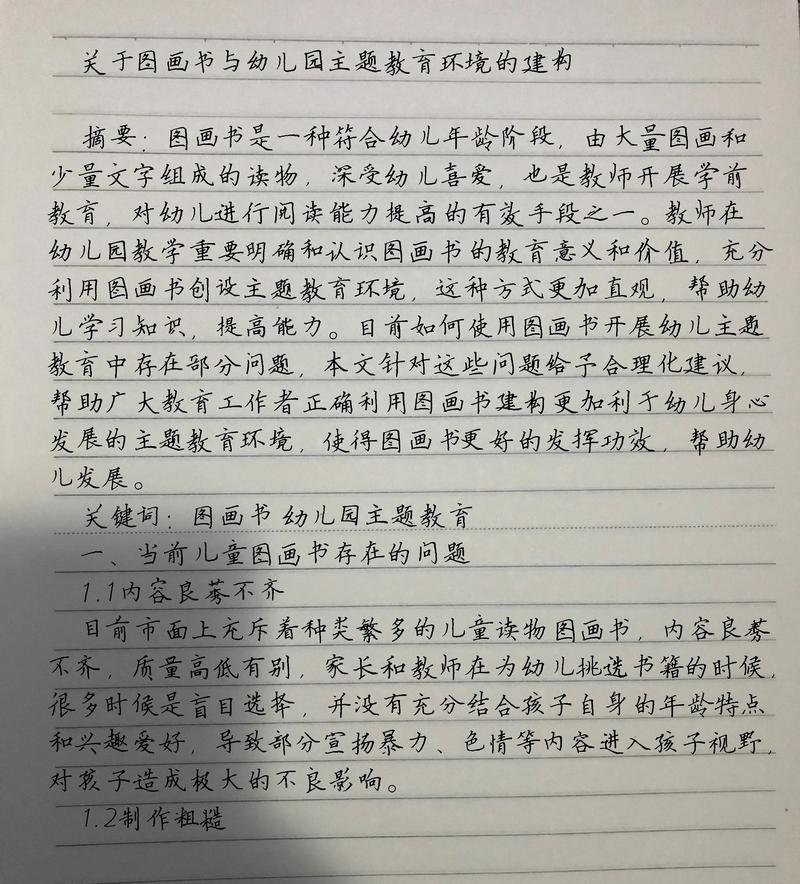 关于图画书与幼儿园主题教育环境的建构
摘要：图画书是一种符合幼儿年龄阶段，由大量图画和
少量文字组成的读物，深受幼儿喜爱，也是教师开展学前
教育，对幼儿进行阅读能力提高的有效手段之一。教师在
幼儿园教学重要明确和认识图画书的教育意义和价值，充分
利用图画书创设主题教育环境，这种方式更加直观，帮助幼
儿学习知识，提高能力。目前如何使用图画书开展幼儿主题
教育中存在部分问题，本文针对这些问题给予合理化建议，
帮助广大教育工作者正确利用图画书建构更加利于幼儿身心
发展的主题教育环境，使得图画书更好的发挥功效，帮助幼
儿发展。
关键词：图画书 幼儿园主题教育
一、当前儿童图画书存在的问题
1.1内容良莠不齐
目前市面上充斥着种类繁多的儿童读物图画书，内容良莠
不齐，质量高低有别，家长和教师在为幼儿挑选书籍的时候，
很多时候是盲目选择，并没有充分结合孩子自身的年龄特点
和兴趣爱好，导致部分宣扬暴力、色情等内容进入孩子视野，
对孩子造成极大的不良影响。
1.2制作粗糙